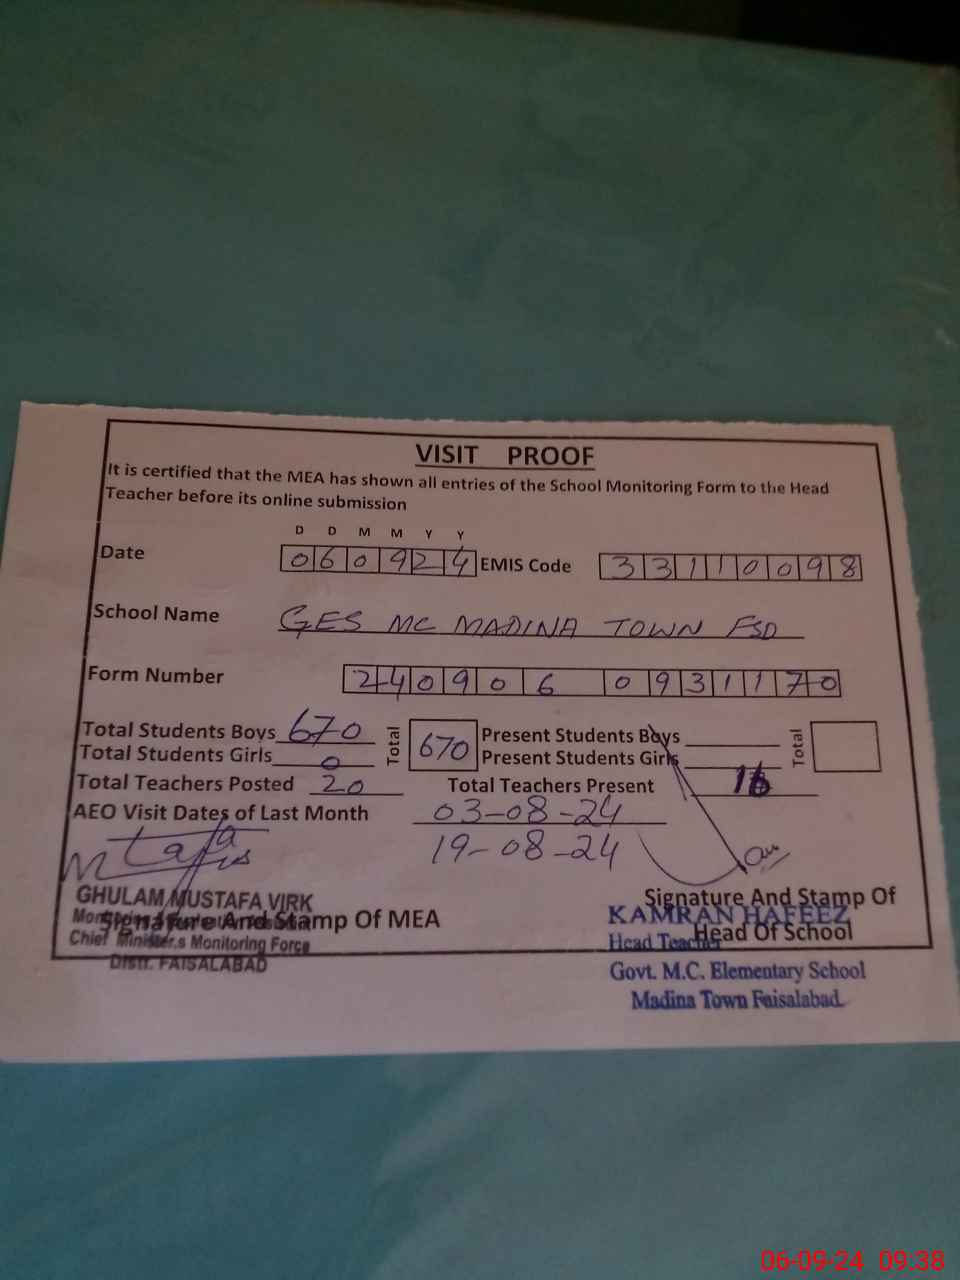 VISIT PROOF
It is certified that the MEA has shown all entries of the School Monitoring Form to the Head
Teacher before its online submission
D D M M Y Y
Date 060924 EMIS Code 33110098
School Name GES MC MADINA TOWN FSD
Form Number 240906 0931170
Total Students Boys 670 Total 670 Present Students Boys Total
Total Students Girls 0 Present Students Girls
Total Teachers Posted 20 Total Teachers Present 16
AEO Visit Dates of Last Month 03-08-24
19-08-24
GHULAM MUSTAFA VIRK
Signature And Stamp Of MEA
Chief Minister,s Monitoring Force
Distt. FAISALABAD
Signature And Stamp Of
KAMRAN HAFEEZ
Head Of School
Head Teacher
Govt. M.C. Elementary School
Madina Town Faisalabad.
06-09-24 09:38